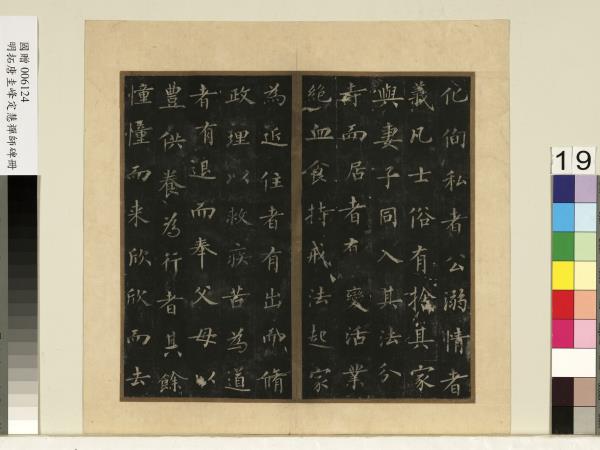 化徇私者公溺情者
義凡士俗有捨其家
與妻子同入其法分
寺而居者有變活業
絕血食持戒法起家
為近住者有出而脩
政理以救疾苦為道
者有退而奉父母以
豊供養為行者其餘
憧憧而来欣欣而去
國贈 006124
明拓唐圭峰定慧禪師碑冊
19